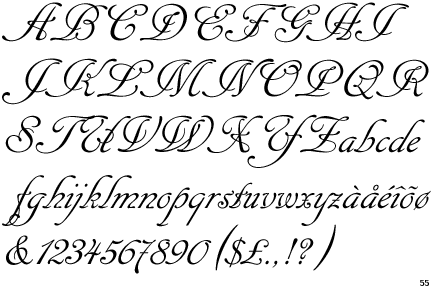 ABCDEFGHI
JKLMNOPQR
STUVWXYZabcde
fghijklmnopqrstuvwxyzàåéîõø
&1234567890($£.,!?)
55